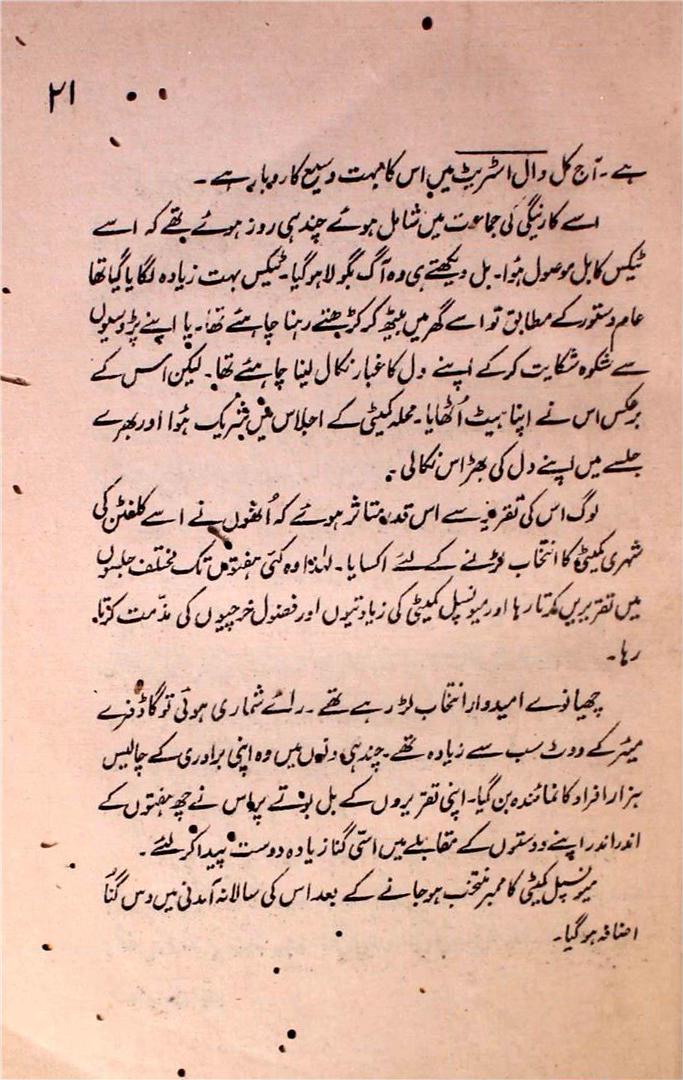 ۲۱
ہے۔ آج کل وال اسٹریٹ میں اس کا بہت وسیع کاروبار ہے۔
اسے کارنیگی کی جماعت میں شامل ہوئے چند ہی روز ہوئے تھے کہ اسے
ٹیکس کا بل موصول ہُوا۔ بل دیکھتے ہی وہ آگ بگولا ہو گیا۔ ٹیکس بہت زیادہ لگایا گیا تھا
عام دستور کے مطابق تو اسے گھر میں بیٹھ کر کڑھتے رہنا چاہئے تھا۔ یا اپنے پڑوسیوں
سے شکوہ شکایت کر کے اپنے دل کا غبار نکال لینا چاہئے تھا۔ لیکن اس کے
برعکس اس نے اپنا ہیٹ اُٹھایا۔ محلہ کمیٹی کے اجلاس میں شریک ہُوا اور بھرے
جلسے میں اپنے دل کی بھڑاس نکالی۔
لوگ اس کی تقریر سے اس قدر متاثر ہوئے کہ اُنھوں نے اسے کلفٹن کی
شہری کمیٹی کا انتخاب لڑنے کے لئے اکسایا۔ لہٰذا وہ کئی ہفتوں تک مختلف جلسوں
میں تقریریں کرتا رہا اور میونسپل کمیٹی کی زیادتیوں اور فضول خرچیوں کی مذّمت کرتا
رہا۔
چھیانوے امیدوار انتخاب لڑ رہے تھے۔ رائے شماری ہوئی تو گاڈفرے
میئر کے ووٹ سب سے زیادہ تھے۔ چند ہی دنوں میں وہ اپنی برادری کے چالیس
ہزار افراد کا نمائندہ بن گیا۔ اپنی تقریروں کے بل بوتے پر اس نے چھ ہفتوں کے
اندر اندر اپنے دوستوں کے مقابلے میں اسّی گنا زیادہ دوست پیدا کر لئے۔
میونسپل کمیٹی کا ممبر منتخب ہو جانے کے بعد اس کی سالانہ آمدنی میں دس گنا
اضافہ ہو گیا۔